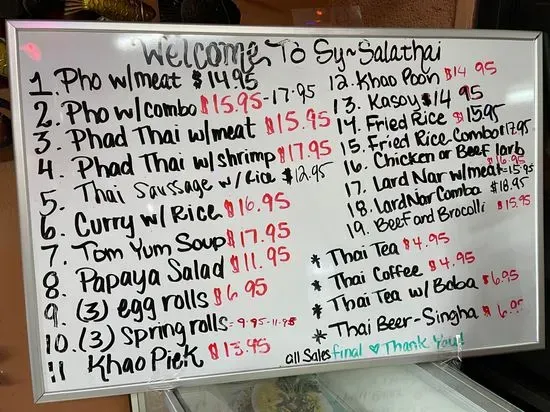 Welcome To Sy~Salathai
1. Pho w/meat $14.95
2. Pho w/combo $15.95-17.95
3. Phad Thai w/meat $15.95
4. Phad Thai w/shrimp $17.95
5. Thai Saussage w/Rice $12.95
6. Curry w/Rice $16.95
7. Tom Yum Soup $17.95
8. Papaya Salad $11.95
9. (3) egg rolls $6.95
10. (3) Spring rolls = 9.95-11.95
11 Khao Piek $13.95
12. Khao Poon $14.95
13. Kasoy $14.95
14. Fried Rice $15.95
15. Fried Rice-Combo 17.95
16. Chicken or Beef larb $16.95
17. Lard Nar w/meat = 15.95
18. Lard Nar Combo $16.95
19. Beef and Brocolli $15.95
* Thai Tea $4.95
* Thai Coffee $4.95
* Thai Tea w/Boba $6.95
* Thai Beer-Singha $6.95
all Sales final ♥ Thank You!